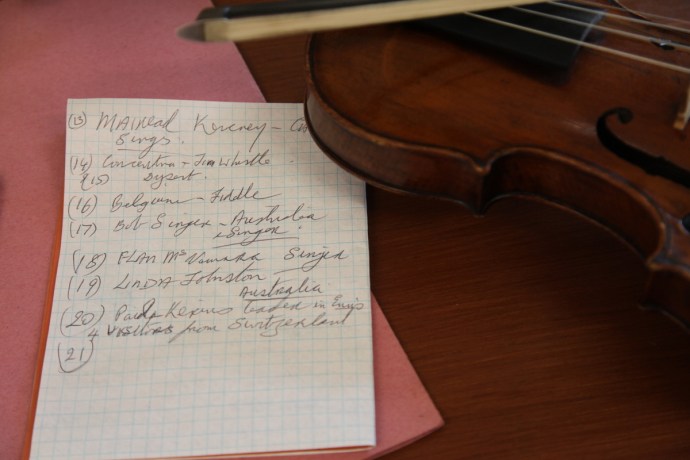 (13) MAIREAD Kerrney -
Sings.
(14) Concertina - Tin Whistle
(15) Dysert.
(16) Belgium - Fiddle
(17) Bob Singer - Australia
Singer.
(18) FLAN Mc Namara Singer
(19) LINDA Johnston
Australia
(20) Kerins teacher in Ennis
4 VISITORS from Switzerland
(21)